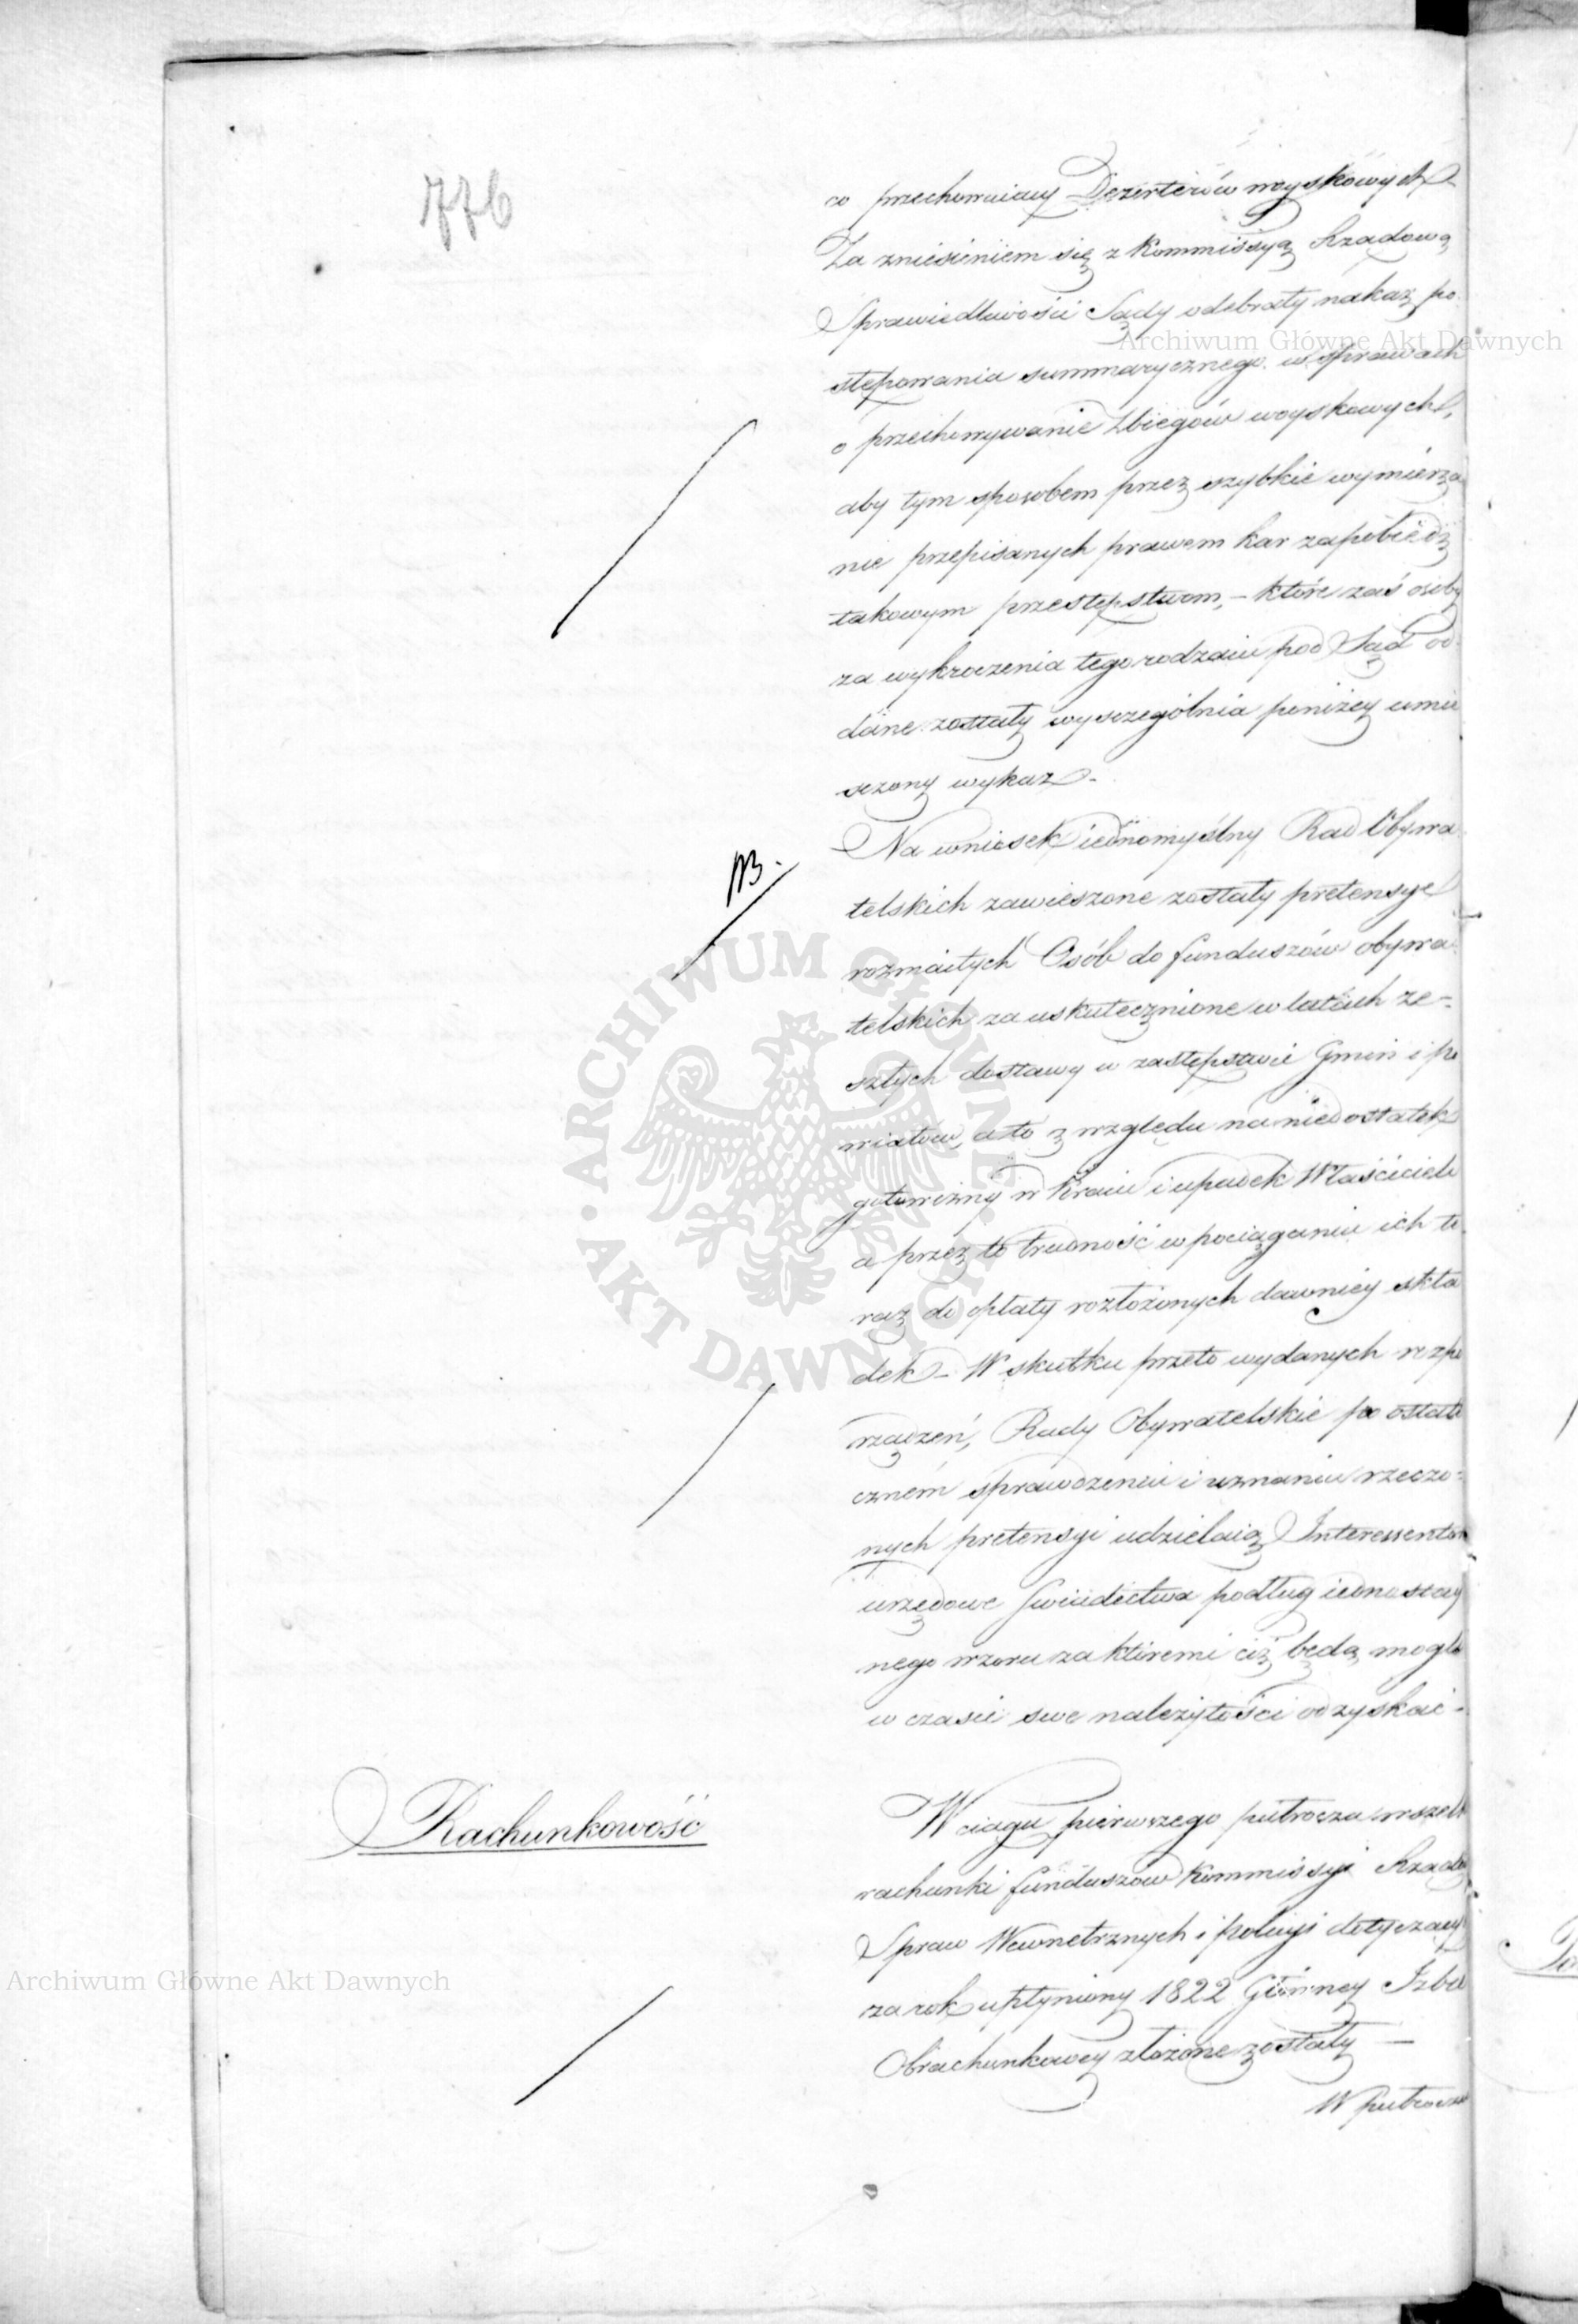 776
co przechowuiący Dezerterów woyskowych
Za zniesieniem się z Kommissyą Rządową
Sprawiedliwości Sądy odebrały nakaz po
stępowania summarycznego w sprawach
o przechowywanie Zbiegów woyskowych,
aby tym sposobem przez szybkie wymierza
nie przepisanych prawem kar zapobiedz
takowym przestępstwom, – które zaś osoby
za wykroczenia tego rodzaiu pod Sąd od
dane zostały wyszczególnia poniżey umie
szczony wykaz –
NB.
Na wniosek iednomyślny Rad Obywa
telskich zawieszone zostały pretensye
rozmaitych Osób do funduszów obywa
telskich za uskutecznione w latach ze-
szłych dostawy w zastępstwie Gmin i po
wiatów, a to z względu na niedostatek
gotowizny w Kraiu i upadek Właścicieli
a przez to trudność w pociąganiu ich te
raz do opłaty rozłożonych dawniey skła
dek – W skutku przeto wydanych rozpo
rządzeń, Rady Obywatelskie po ostate
cznem sprawdzeniu i uznaniu rzeczo=
nych pretensyi udzielaią Interessentom
urzędowe Swiadectwa podług iednostay
nego wzoru za któremi ciż będą mogli
w czasie swe należytości odzyskać –
Rachunkowość
W ciągu pierwszego półrocza wszelk
rachunki funduszów Kommissyi Rządo
Spraw Wewnetrznych i policyi dotyczący
za rok upłyniony 1822 Główney Izbie
Obrachunkowey złożone zostały –
W półrocz
Archiwum Główne Akt Dawnych
ARCHIWUM GŁÓWNE • AKT DAWNYCH •
Archiwum Główne Akt Dawnych